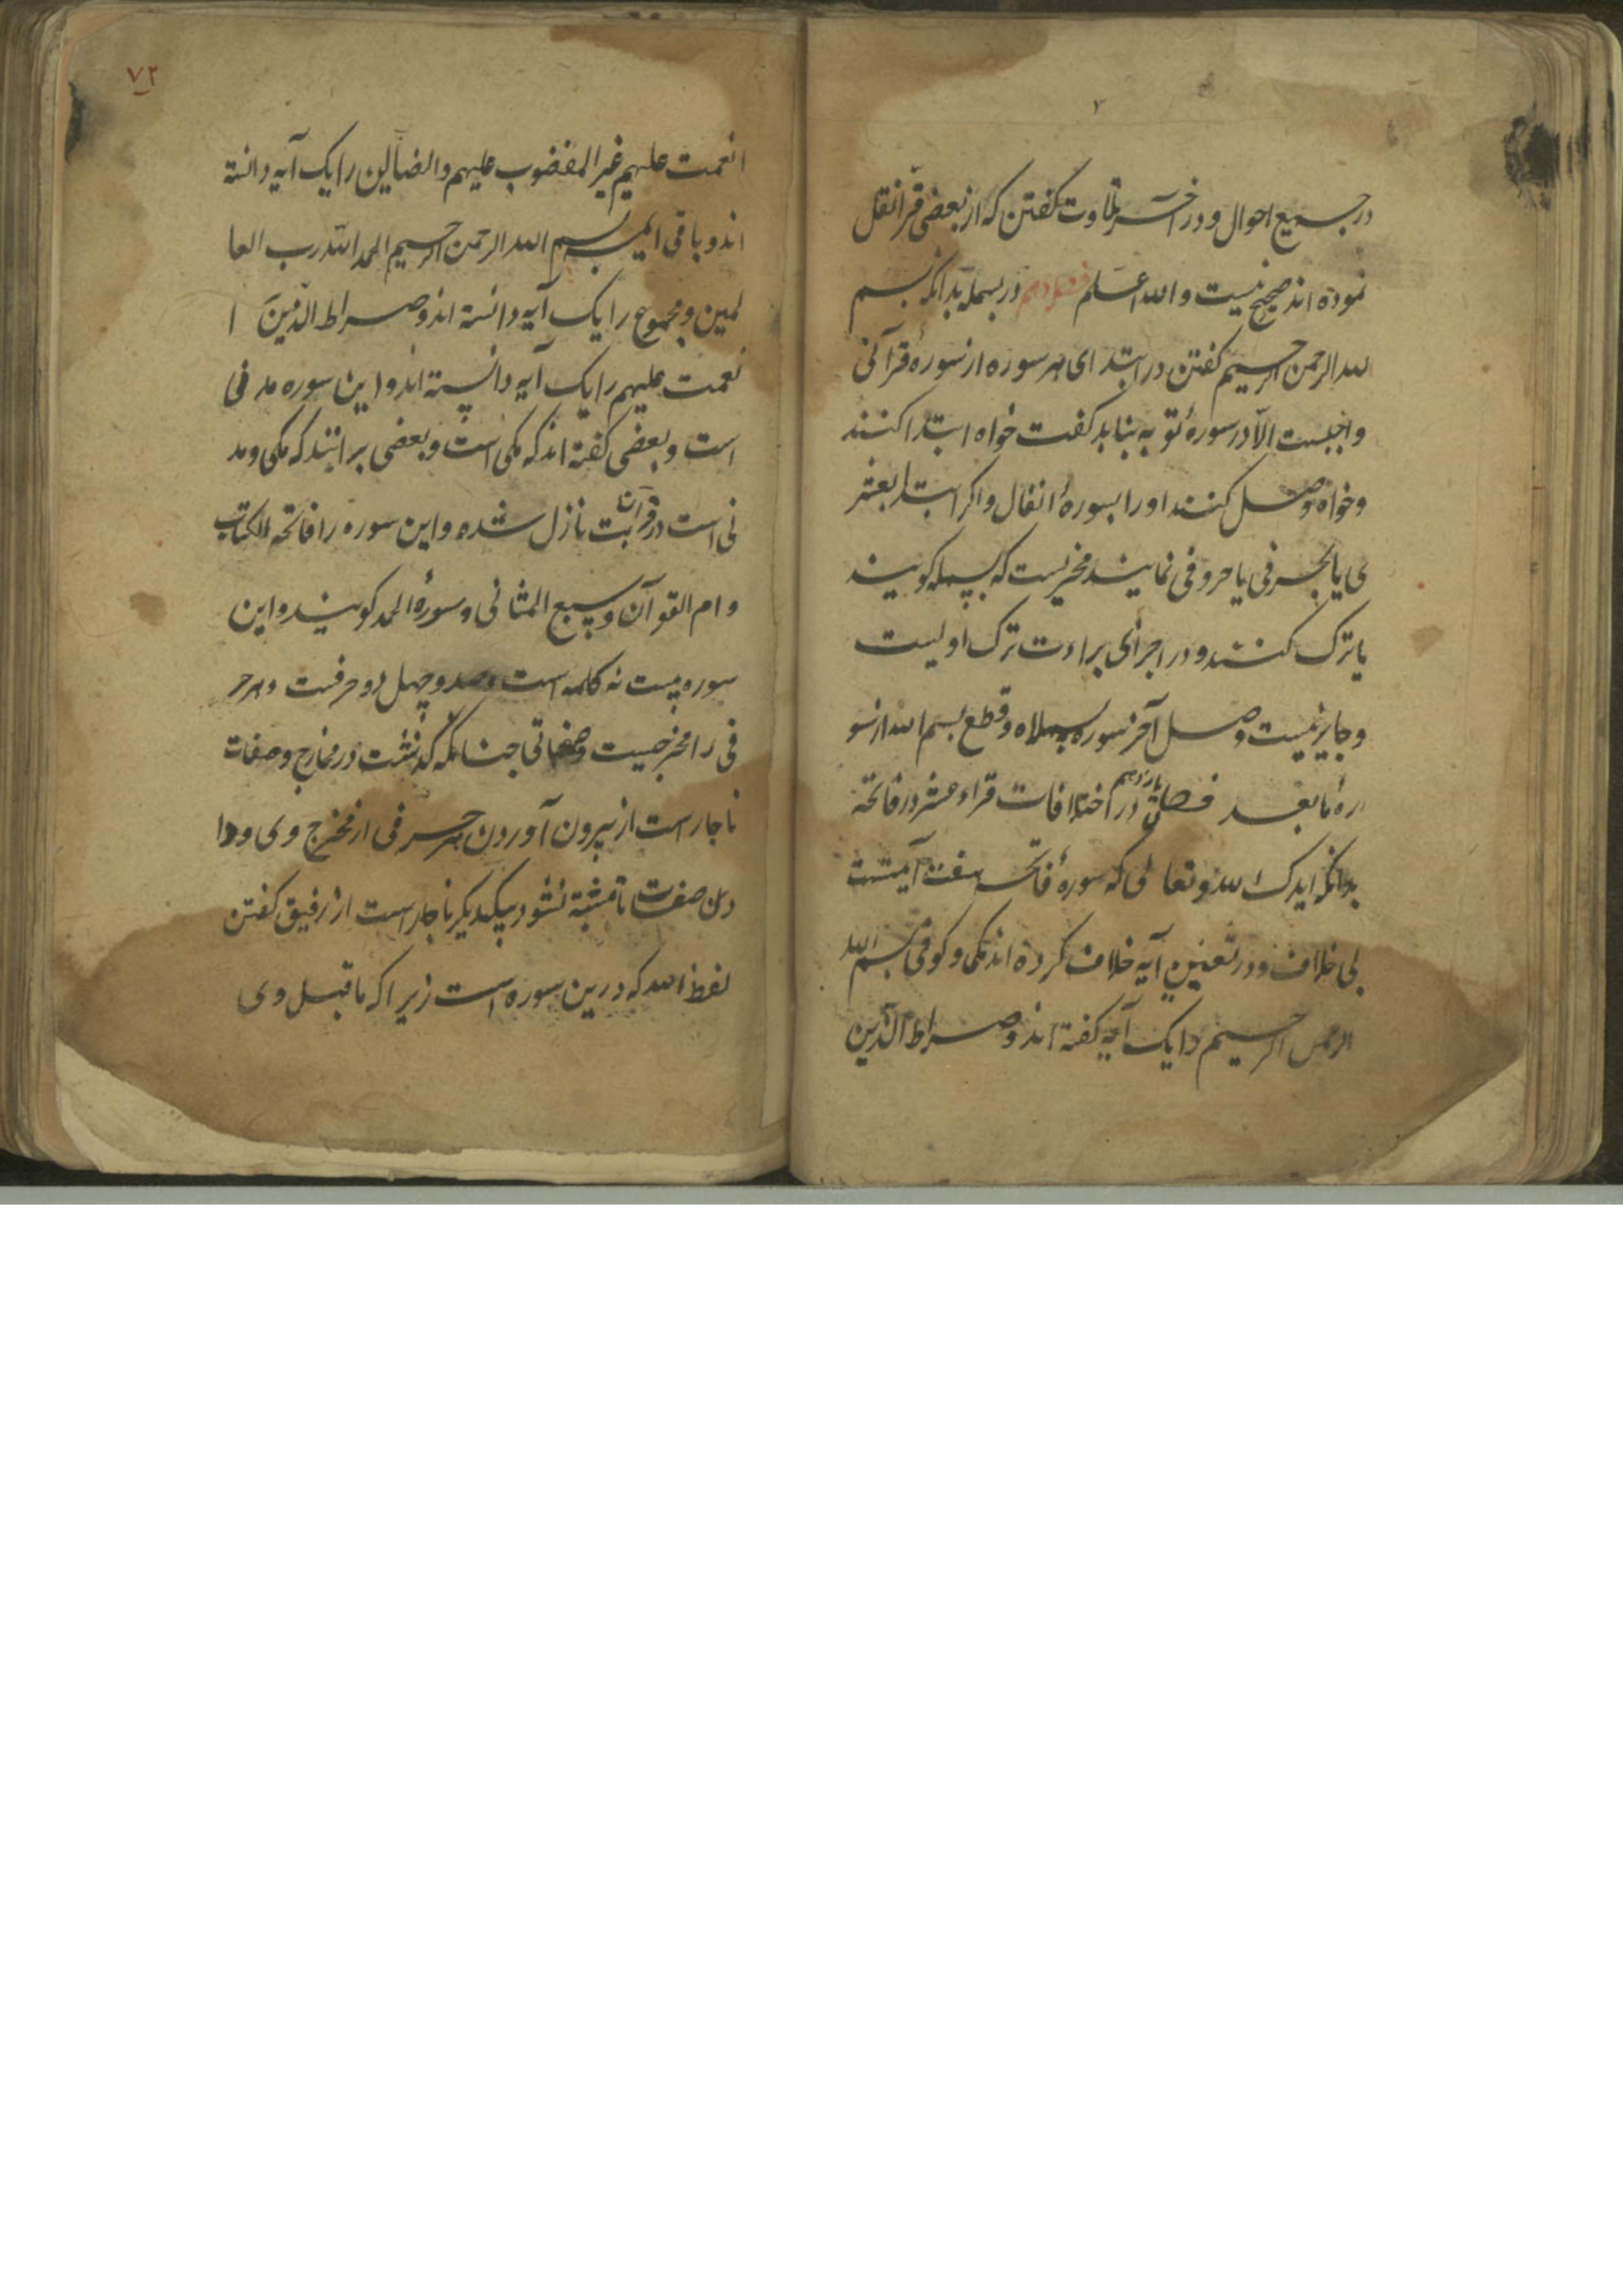 در جمیع احوال و در آخر تلاوت گفتن که از بعضی قرّا نقل
نموده اند صحیح نیست و الله اعلم فصل دهم در بسمله بدانکه بسم
لله الرحمن الرحیم گفتن در ابتدای هر سوره از سورهٔ قرآنی
واجبست الّا در سورهٔ توبه بنابد گفت خواه ابتدا کنند
وخواه وصل کنند اورا بسورهٔ انفال و اگر ابتدا بعشر
ی یا بحرفی یا حروفی نمایند مخیریست که بسمله گویند
یا ترک کنند و در اجزای براءت ترک اولیست
و جایز نیست وصل آخر سوره ببسمله و قطع بسم الله از سو
رهٔ ما بعد فصل یازدهم در اختلافات قراء عشر در فاتحه
بدانکه ایدک الله و تعالی که سورهٔ فاتحه هفت آیتست
بی خلاف و در تعیین آیه خلاف کرده اند مکی و کوفی بسم الله
الرحمن الرحیم را یک آیه گفته اند و صراط الّذین
٧٢
انعمت علیهم غیر المغضوب علیهم و الضآلین را یک آیه دانسته
اند و باقی ایمه بسم الله الرحمن الرحیم الحمد الله رب العا
لمین و مجموع را یک آیه دانسته اند و صراط الّذین ا
نعمت علیهم را یک آیه دانسته اند و این سوره مدنی
است و بعضی گفته اند که مکی است و بعضی برانند که مکی و مد
نی است در قرآن بت نازل شده و این سوره را فاتحه الکتاب
و ام القرآن و سبع المثانی و سورهٔ الحمد گویند و این
سوره بیست نه کلمه است و صد و چهل دو حرفست و هر حر
فی را مخرجیست و صفاتی چنانکه گذشت در مخارج و صفات
ناچار است از بیرون آوردن هر حرفی از مخرج وی و دا
دن صفات تا مشتبه نشود بیکدیکر ناچار است از رقیق گفتن
لفظ الله که درین سوره است زیرا که ما قبل وی